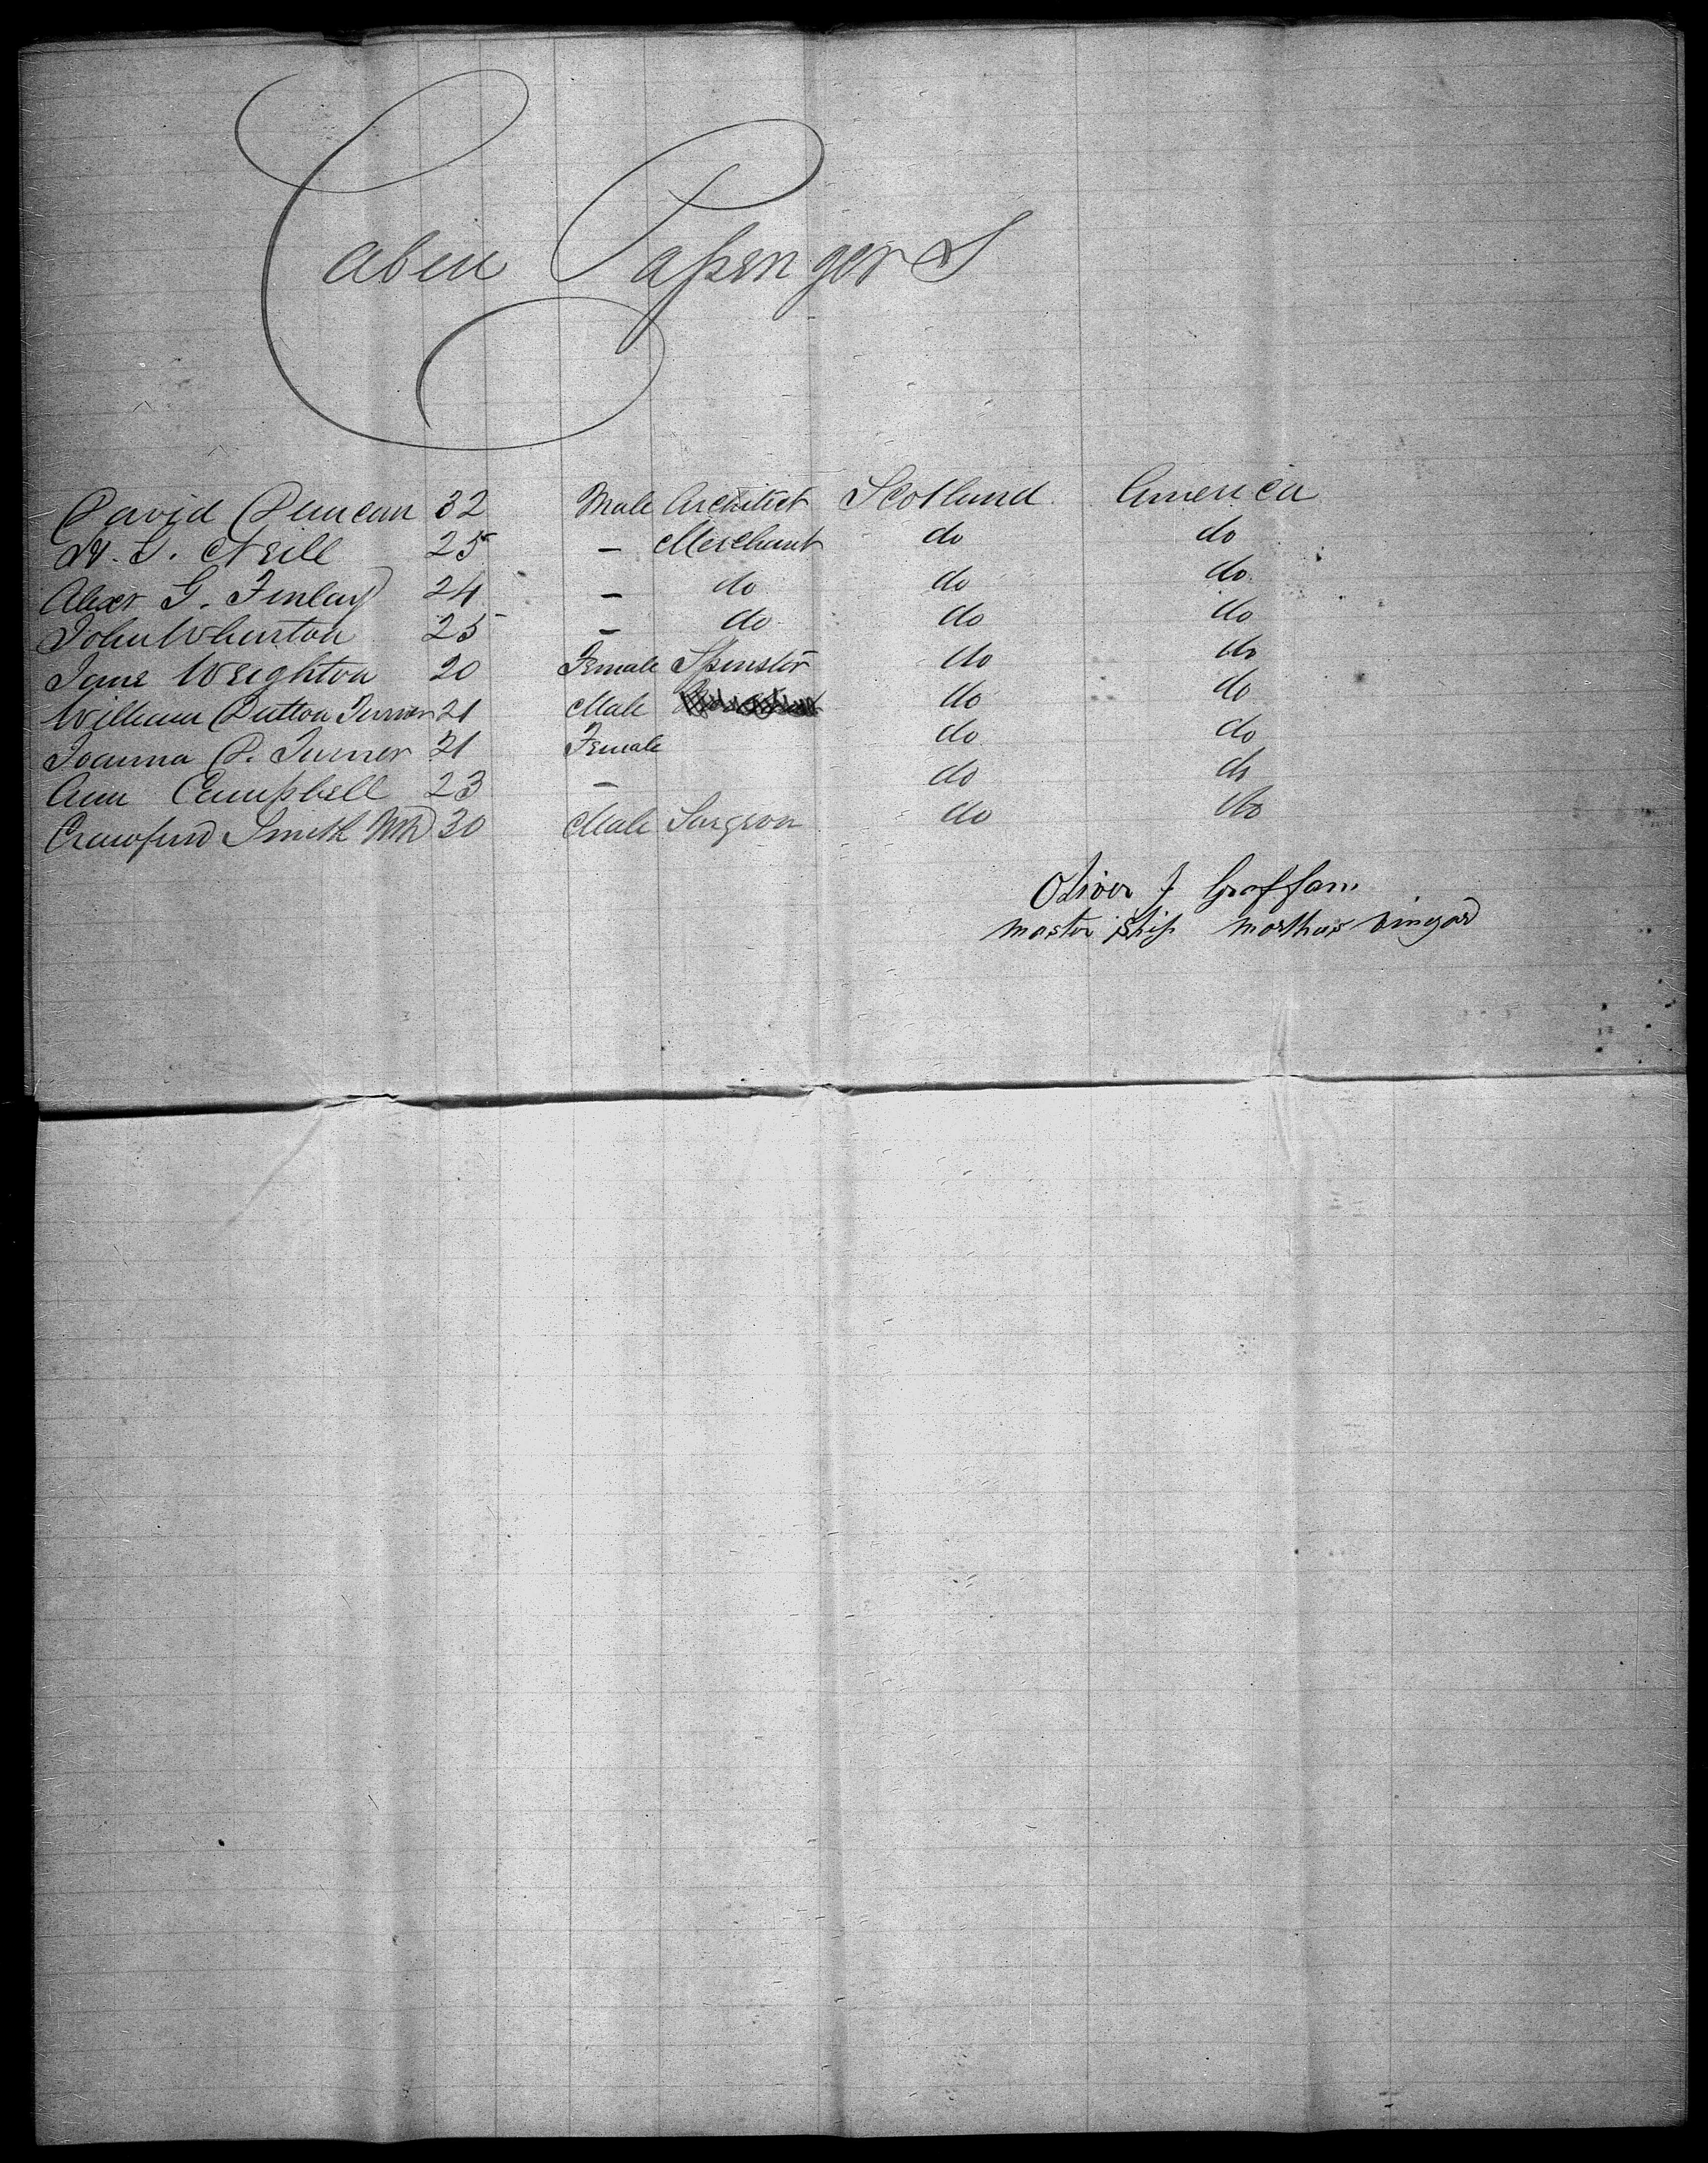 Cabin Passengers
David Duncan 32 Male Architect Scotland America
25 – Merchant do do
Alexr G. Finlay 24 – do do do
John Wharton 25 – do do do
Jane Weighton 20 Female Spinster do do
William Dutton Turner 21 Male do do
Joanna D. Turner 21 Female do do
Ann Campbell 23 – do do
Crawford Smith MD 30 Male Surgeon do do
Oliver J Graffam
master ship marthas vinyard